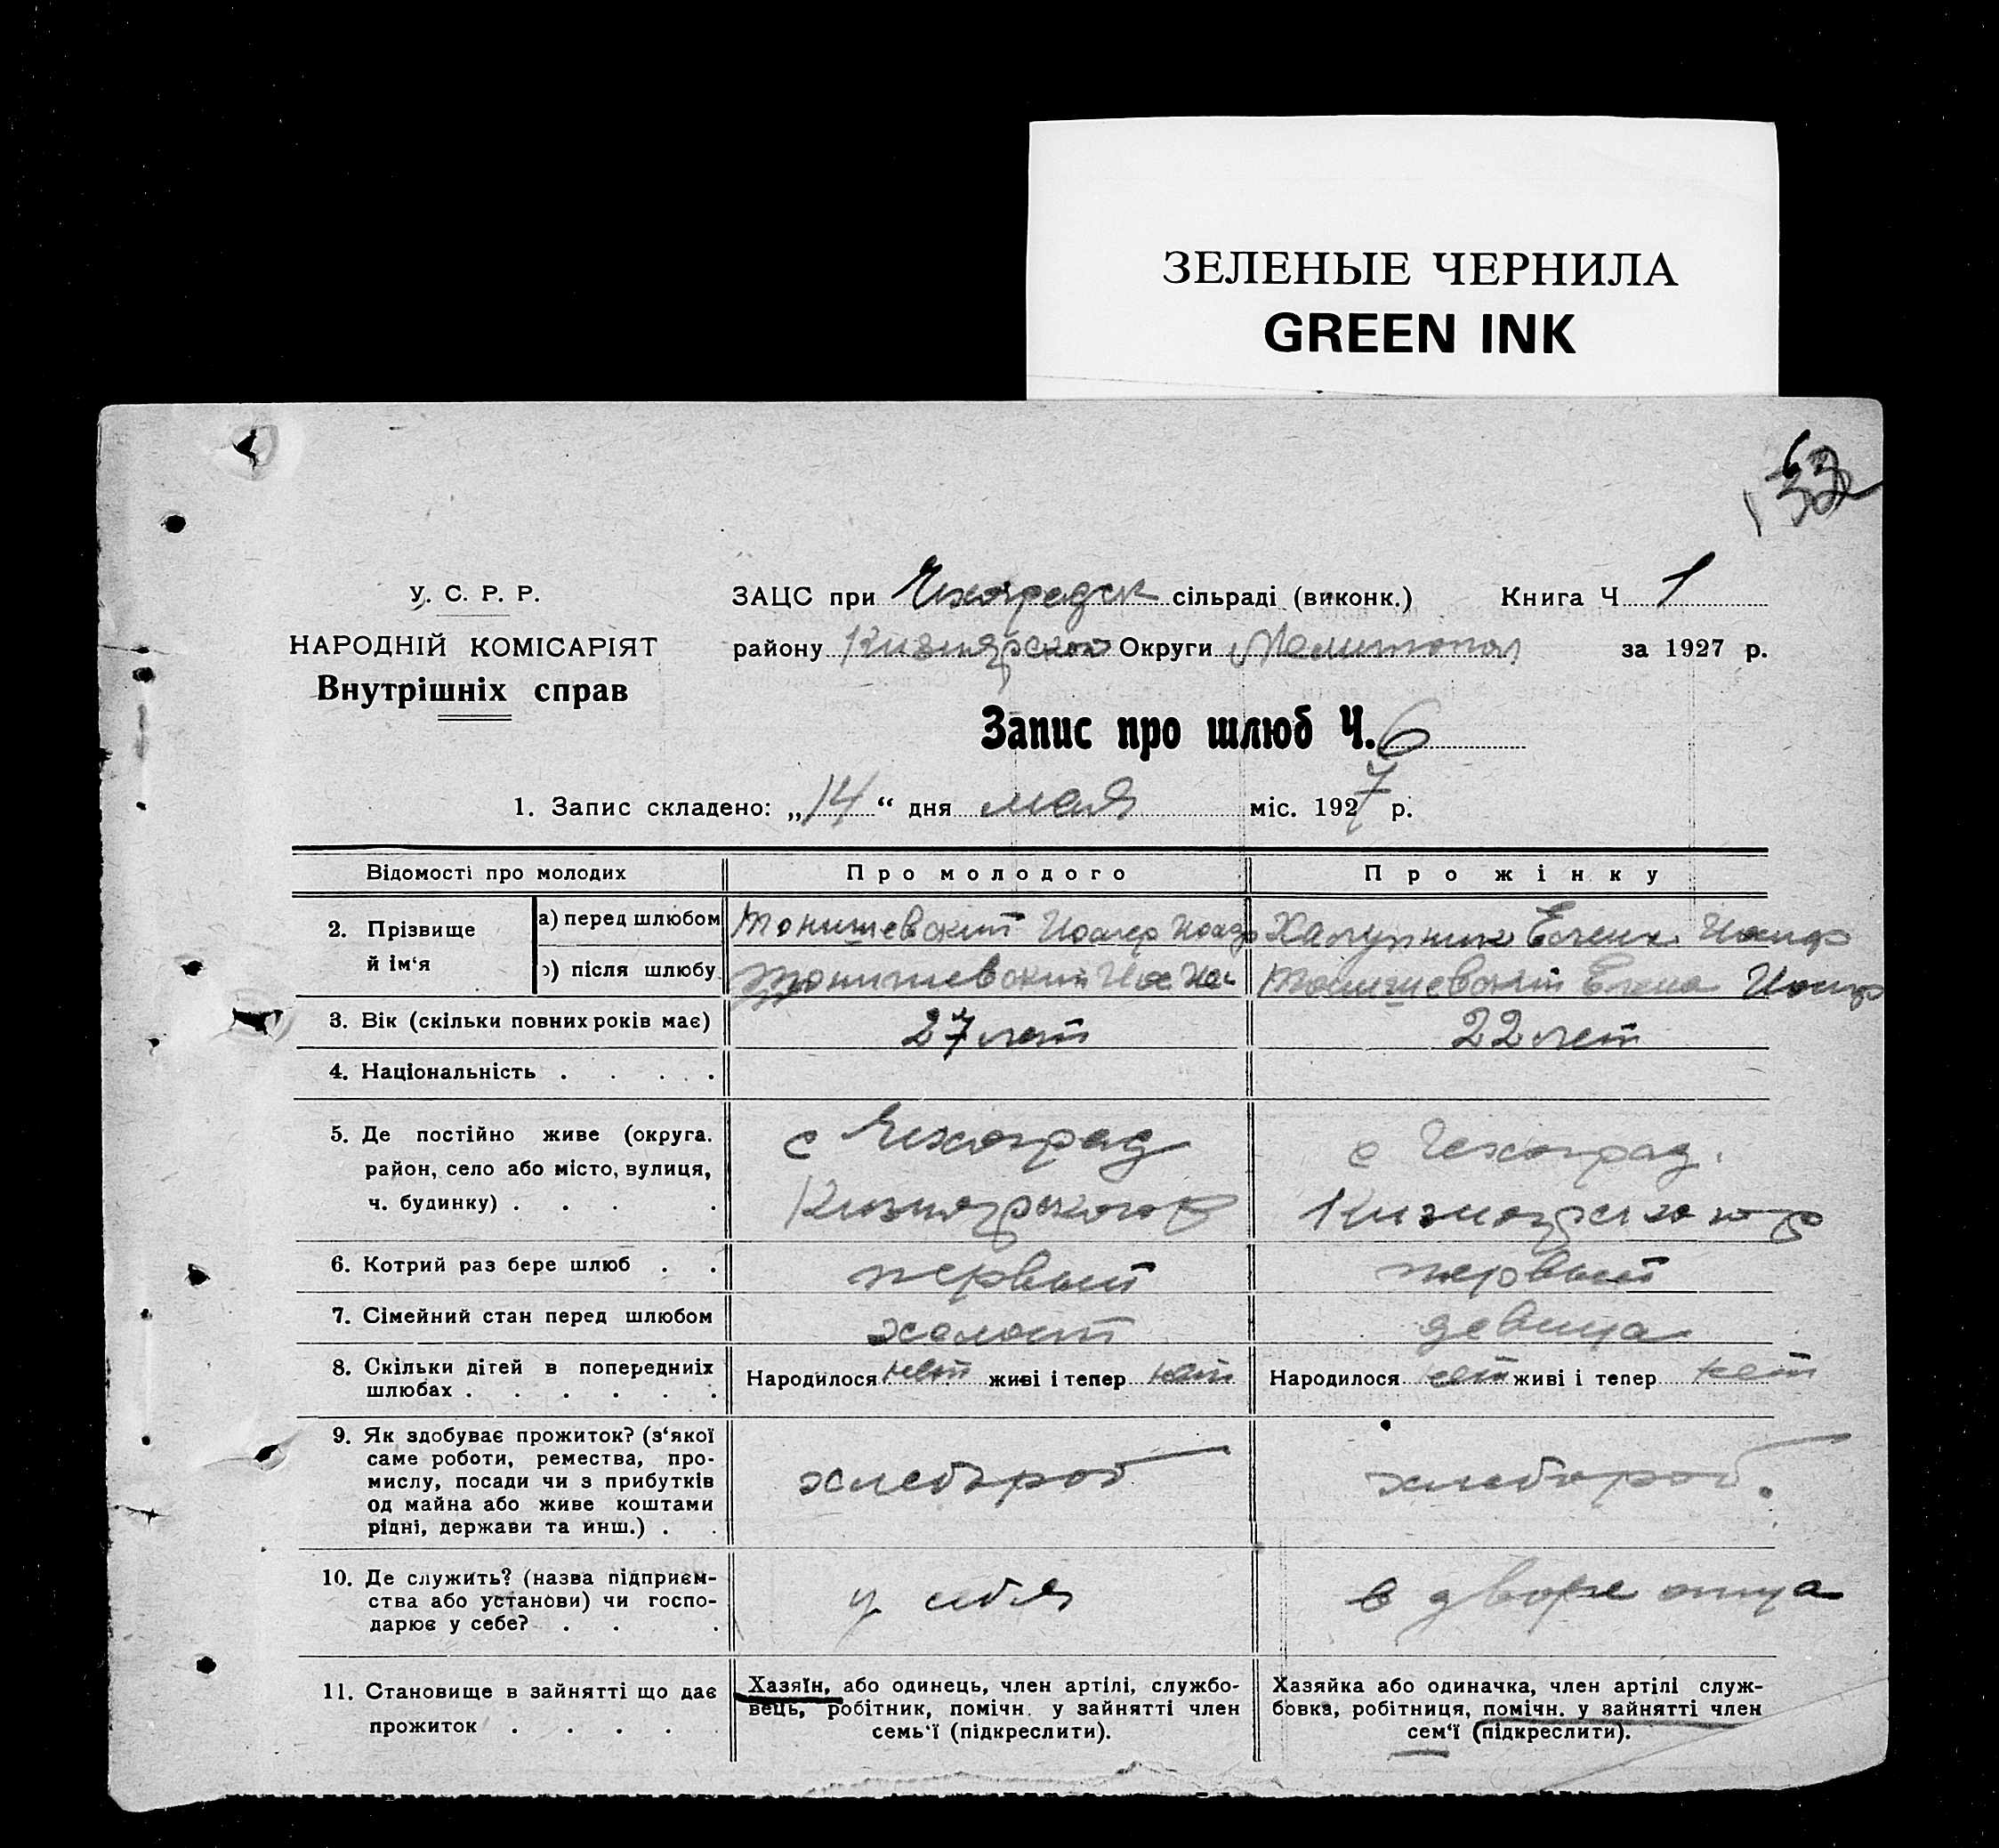 ЗЕЛЕНЫЕ ЧЕРНИЛА
GREEN INK
У. С. Р. Р.
НАРОДНІЙ КОМІСАРІЯТ
Внутрішніх справ
ЗАЦС при Чехоградск сільраді (виконк.) Книга Ч 1
району Кизиярской Округи Мелитопол за 1927 р.
Запис про шлюб Ч. 6
1. Запис складено: „14“ дня мая міс. 1927 р.
Відомості про молодих Про молодого Про жінку
2. Прізвище й ім‘я
а) перед шлюбом Елена Иосиф
) після шлюбу Елена Иосиф
3. Вік (скільки повних років має) 27 лет 22 лет
4. Національність . . . . .
5. Де постійно живе (округа. с Чехоград с Чехоград.
район, село або місто, вулиця,
ч. будинку) . . . . Кизиярского Кизиярского
6. Котрий раз бере шлюб . . первый первый
7. Сімейний стан перед шлюбом холост девица
8. Скільки дітей в попередниіх Народилося нет живі і тепер нет Народилося нет живі і тепер нет
шлюбах . . . . . .
9. Як здобуває прожиток? (з‘якої
саме роботи, ремества, про-
мислу, посади чи з прибутків хлебороб хлебороб.
од майна або живе коштами
рідні, держави та инш.) . .
10. Де служить? (назва підприєм-
ства або установи) чи госпо- у себя в дворе отца
дарює у себе? . . .
11. Становище в зайнятті що дає
прожиток . . . .
Хазяїн, або одинець, член артілі, службо-
вець, робітник, помічн. у зайнятті член
семь‘ї (підкреслити).
Хазяйка або одиначка, член артілі служ-
бовка, робітниця, помічн. у зайнятті член
сем‘ї (підкреслити).